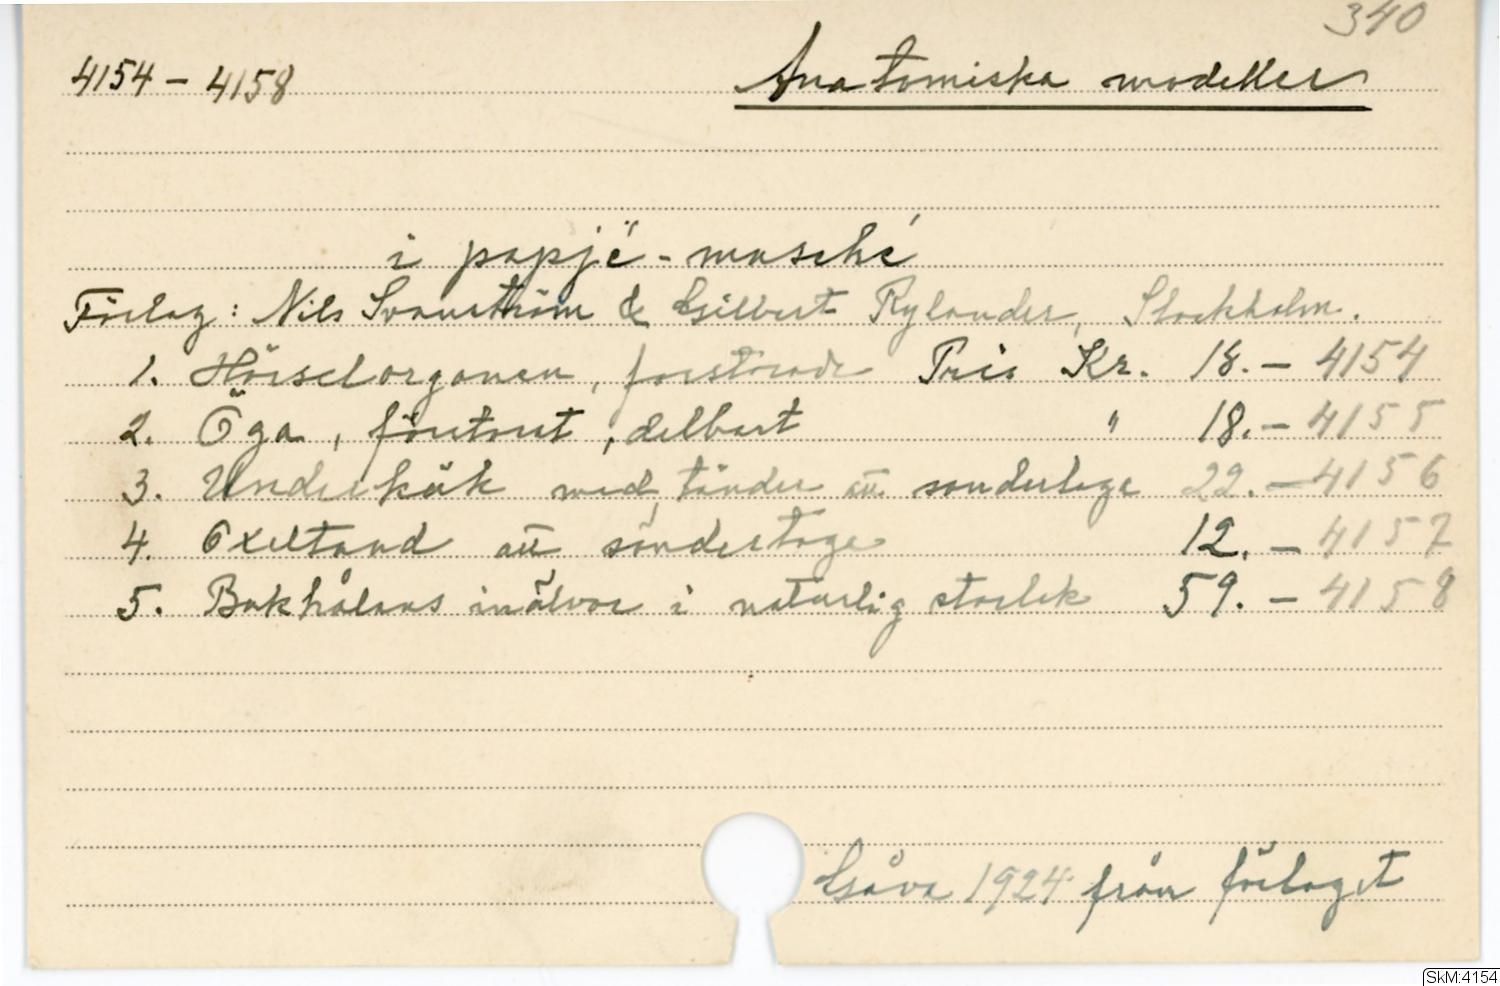 340
4154 - 4158 Anatomiska modeller
i papjë-masché
Förlag: Nils Svanström & Gilbert Rylander, Stockholm.
1. Hörselorganen, förstorade Pris Kr. 18.- 4154
2. Öga, förstorat, delbart " 18.- 4155
3. Underkäk med tänder att söndertaga 22.- 4156
4. Oxeltand att söndertaga 12.- 4157
5. Bukhålans inälvor i naturlig storlek 59.- 4158
Gåva 1924 från förlaget
SkM:4154